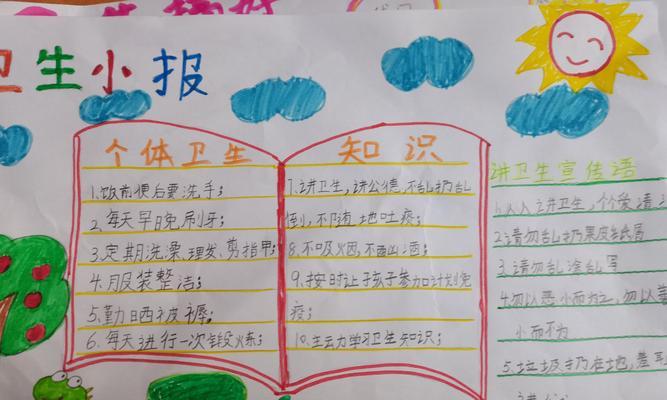 卫生小报
个体卫生
1.饭前便后要洗手;
2.每天早晚刷牙;
3.定期洗澡、理发、剪指甲;
4.服装整洁;
5.勤晒被褥;
6.每天进行一次锻炼;
知识
7.讲卫生,讲公德,不乱扔乱
倒,不随地吐痰;
8.不吸烟,不酗酒;
9.按时让孩子参加计划免
疫;
10.主动学习卫生知识;
讲卫生宣传语
1.人人讲卫生,个个爱清
2.请勿乱扔果皮纸屑
3.请勿乱涂乱写
4.勿以恶小而为之,勿以善
小而不为
5.垃圾扔在地,羞